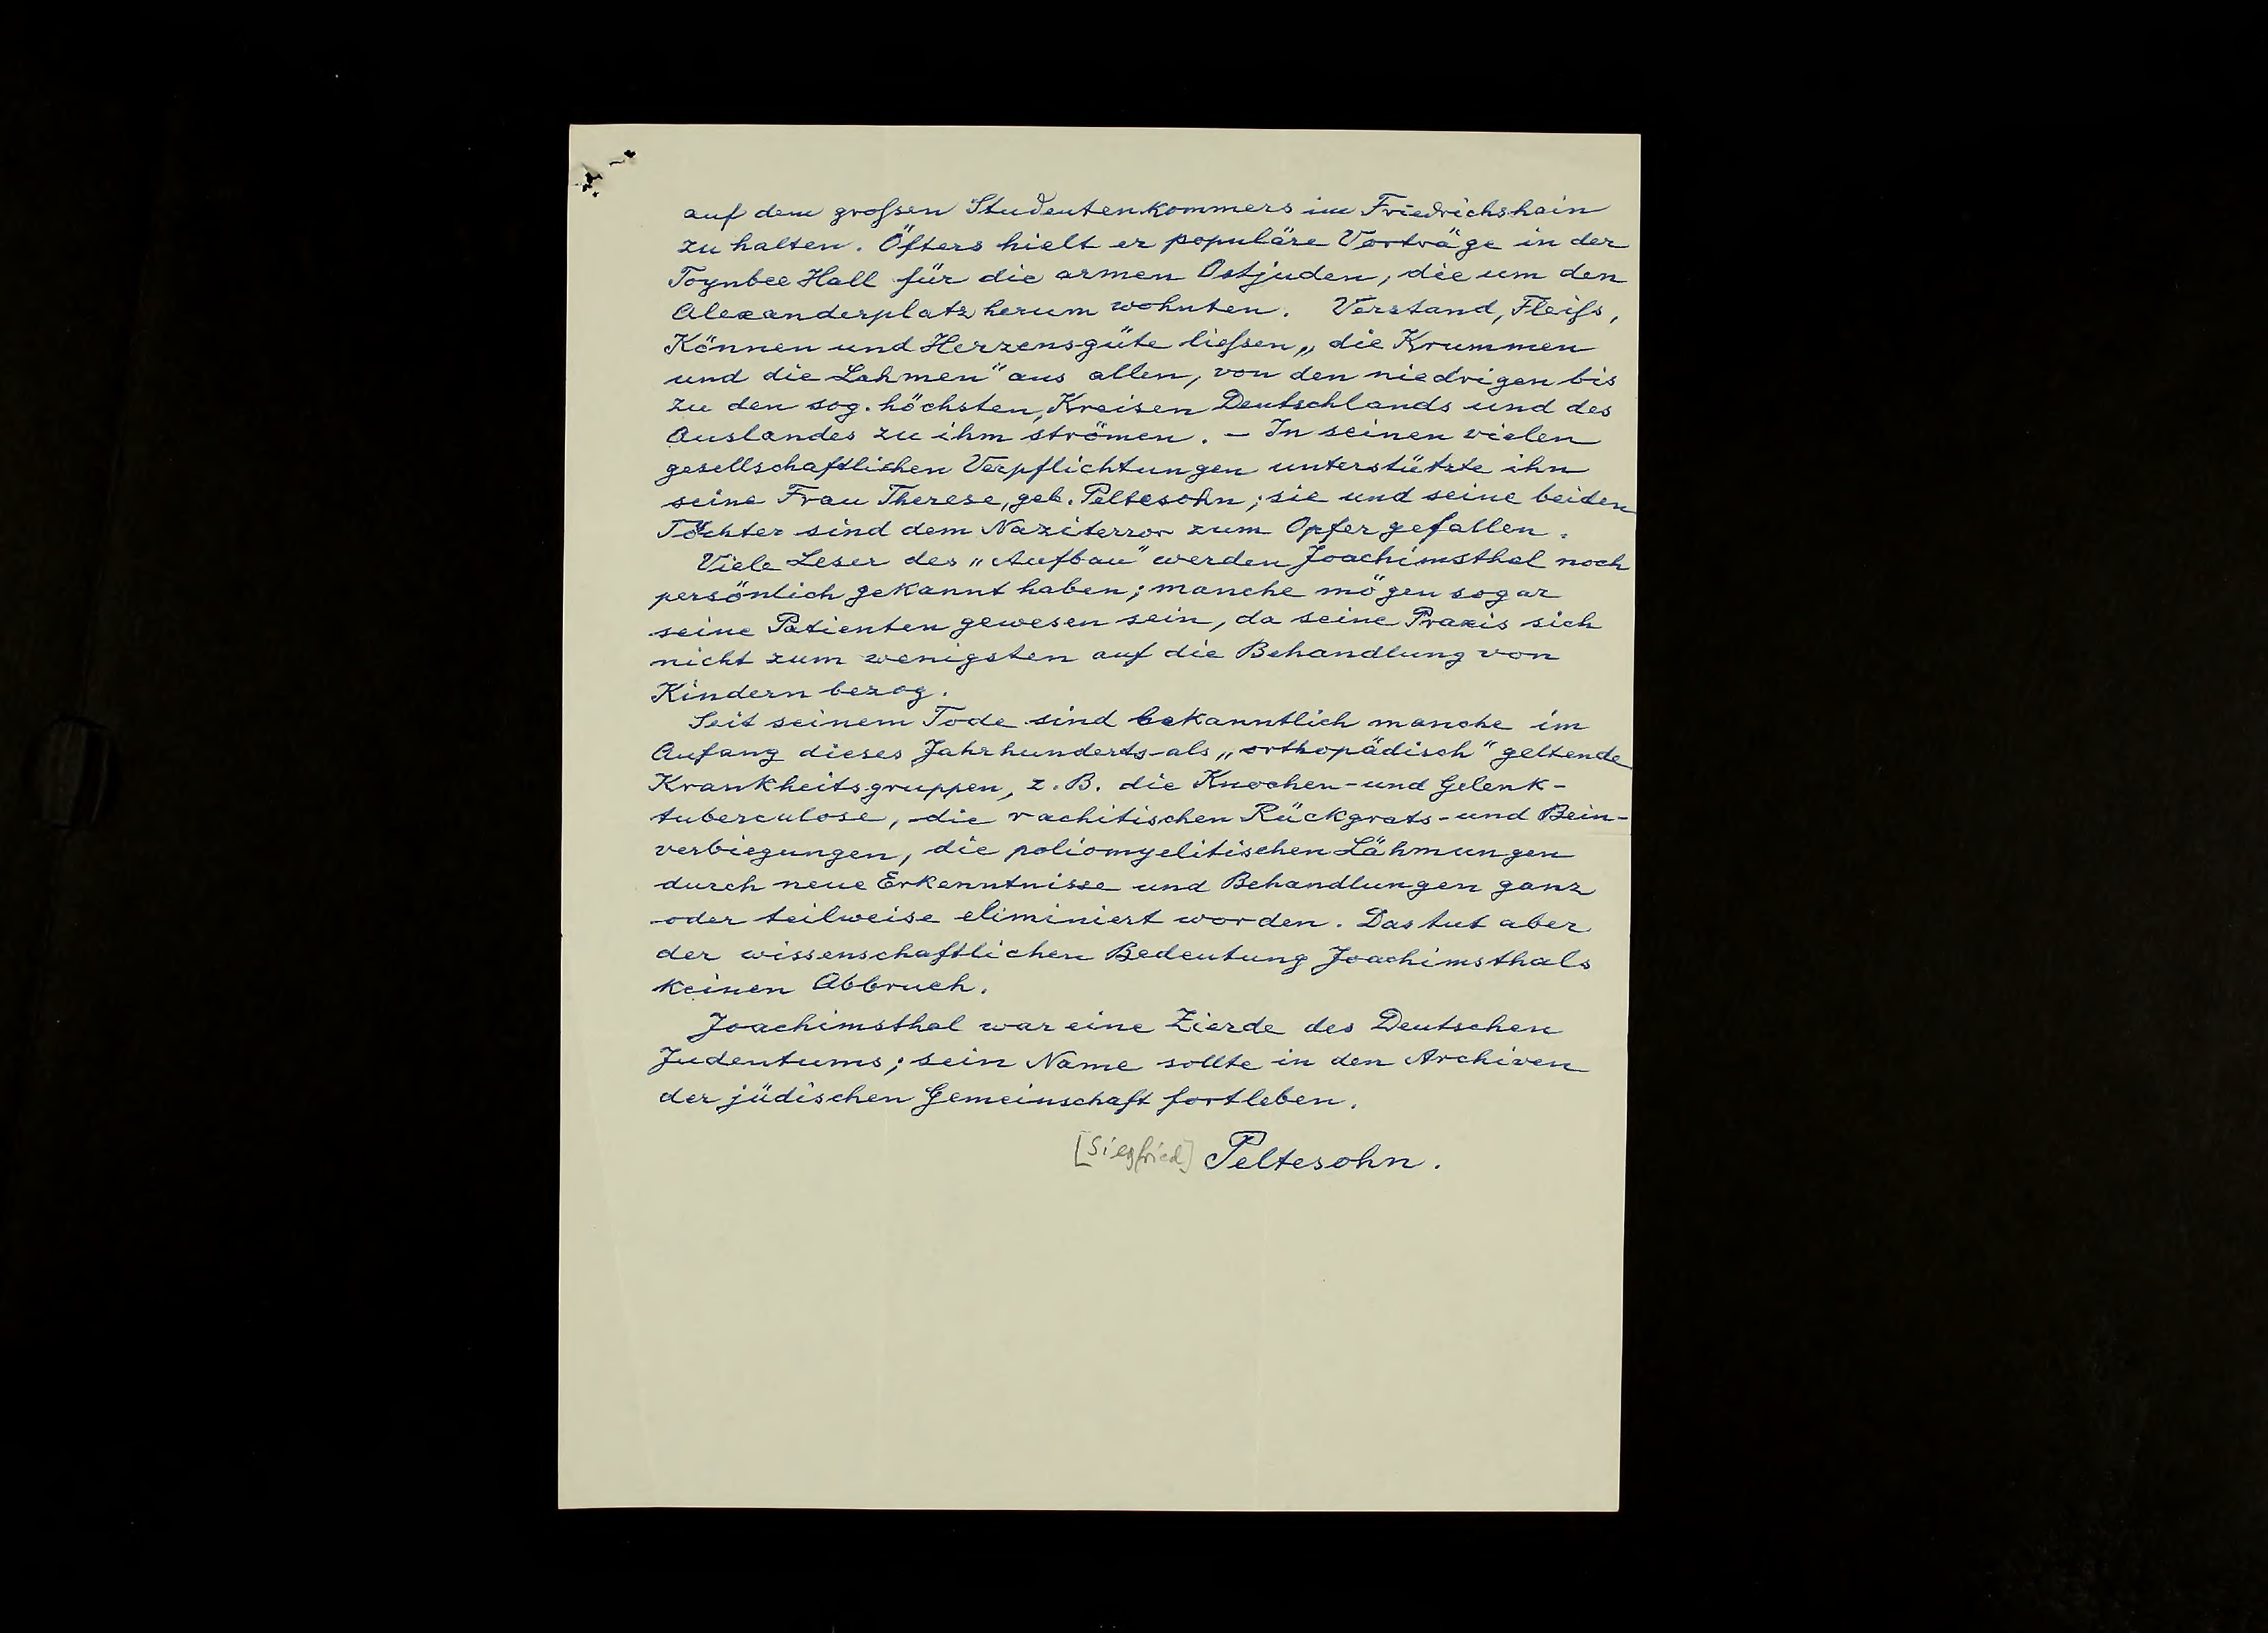 auf dem großen Studentenkommers im Friedrichshain
zu halten. Öfters hielt er populäre Vorträge in der
Toynbee Hall für die armen Ostjuden, die um den
Alexanderplatz herum wohnten. Verstand, Fleiß,
Können und Herzensgüte ließen „die Krummen
und die Lahmen" aus allen, von den niedrigen bis
zu den sog. höchsten, Kreisen Deutschlands und des
Auslandes zu ihm strömen. – In seinen vielen
gesellschaftlichen Verpflichtungen unterstützte ihn
seine Frau Therese, geb. Peltesohn; sie und seine beiden
Töchter sind dem Naziterror zum Opfer gefallen.
Viele Leser des „Aufbau" werden Joachimsthal noch
persönlich gekannt haben; manche mögen sogar
seine Patienten gewesen sein, da seine Praxis sich
nicht zum wenigsten auf die Behandlung von
Kindern bezog.
Seit seinem Tode sind bekanntlich manche im
Anfang dieses Jahrhunderts als „orthopädisch" geltende
Krankheitsgruppen, z. B. die Knochen- und Gelenk-
tuberculose, die rachitischen Rückgrats- und Bein-
verbiegungen, die poliomyelitischen Lähmungen
durch neue Erkenntnisse und Behandlungen ganz
oder teilweise eliminiert worden. Das tut aber
der wissenschaftlichen Bedeutung Joachimsthals
keinen Abbruch.
Joachimsthal war eine Zierde des Deutschen
Judentums; sein Name sollte in den Archiven
der jüdischen Gemeinschaft fortleben.
[Siegfried] Peltesohn.